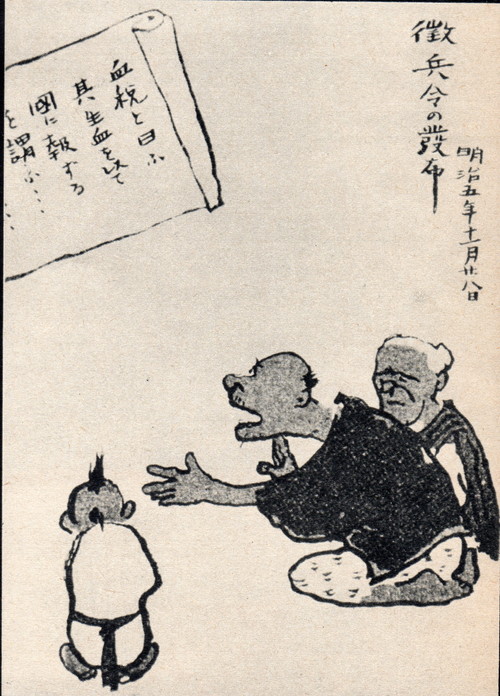 徴兵令の發布
明治五年十一月廿八日
血税と曰ふ
其生血を以て
國に報する
を謂ふ……